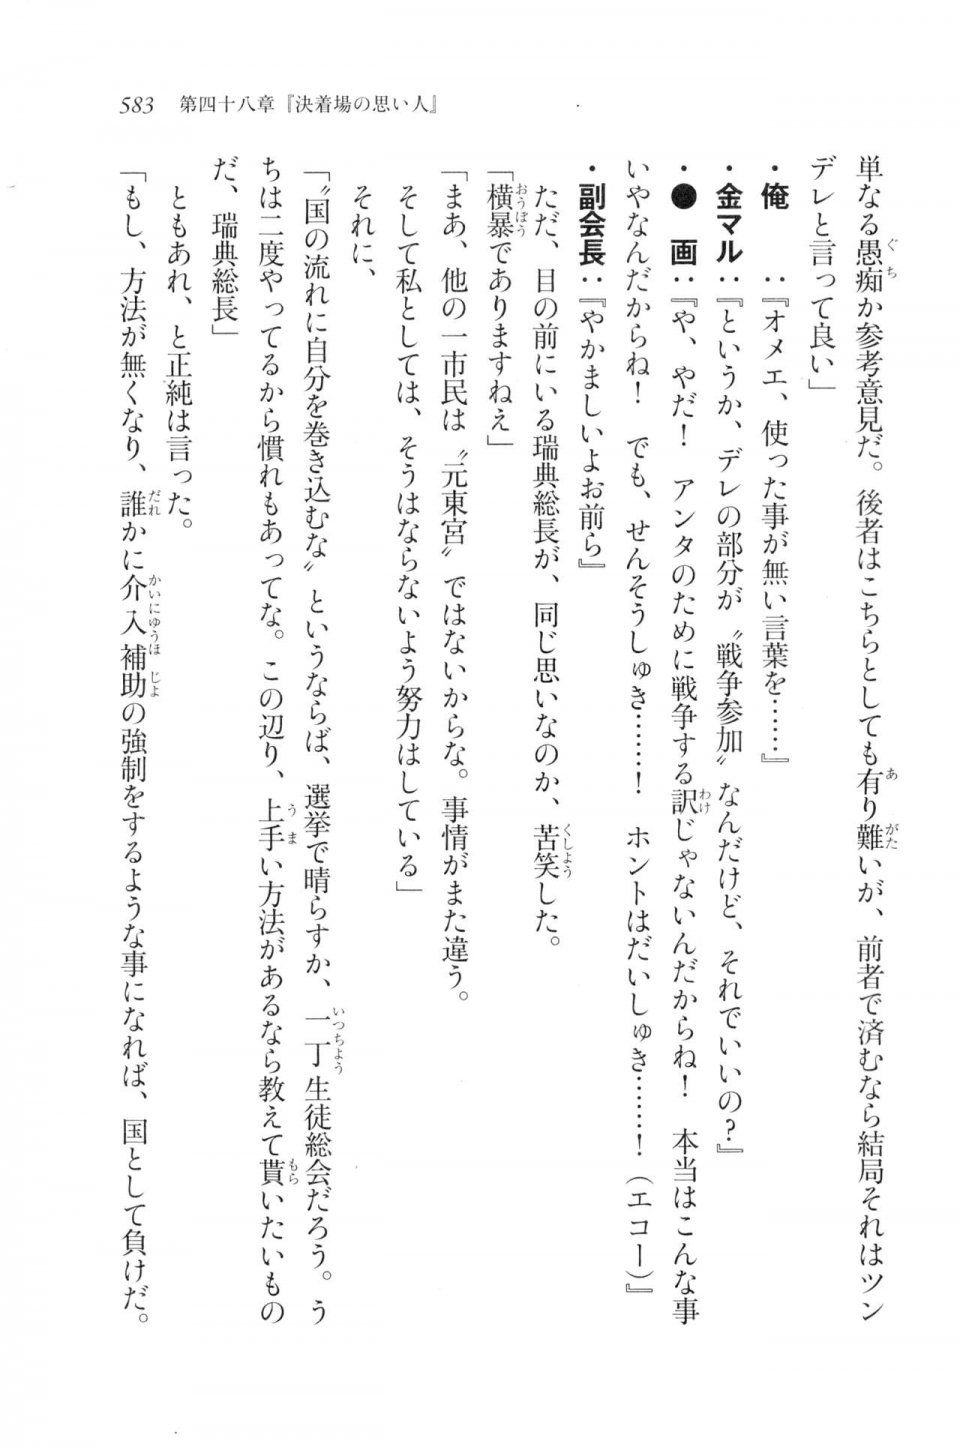 583　第四十八章『決着場の思い人』
単なる愚痴か参考意見だ。後者はこちらとしても有り難いが、前者で済むなら結局それはツン
デレと言って良い」
・俺　　：『オメエ、使った事が無い言葉を……』
・金マル：『というか、デレの部分が〝戦争参加〟なんだけど、それでいいの？』
・●　画：『や、やだ！　アンタのために戦争する訳じゃないんだからね！　本当はこんな事
いやなんだからね！　でも、せんそうしゅき……！　ホントはだいしゅき……！（エコー）』
・副会長：『やかましいよお前ら』
　ただ、目の前にいる瑞典総長が、同じ思いなのか、苦笑した。
「横暴でありますねえ」
「まあ、他の一市民は〝元東宮〟ではないからな。事情がまた違う。
　そして私としては、そうはならないよう努力はしている」
　それに、
「〝国の流れに自分を巻き込むな〟というならば、選挙で晴らすか、一丁生徒総会だろう。う
ちは二度やってるから慣れもあってな。この辺り、上手い方法があるなら教えて貰いたいもの
だ、瑞典総長」
　ともあれ、と正純は言った。
「もし、方法が無くなり、誰かに介入補助の強制をするような事になれば、国として負けだ。